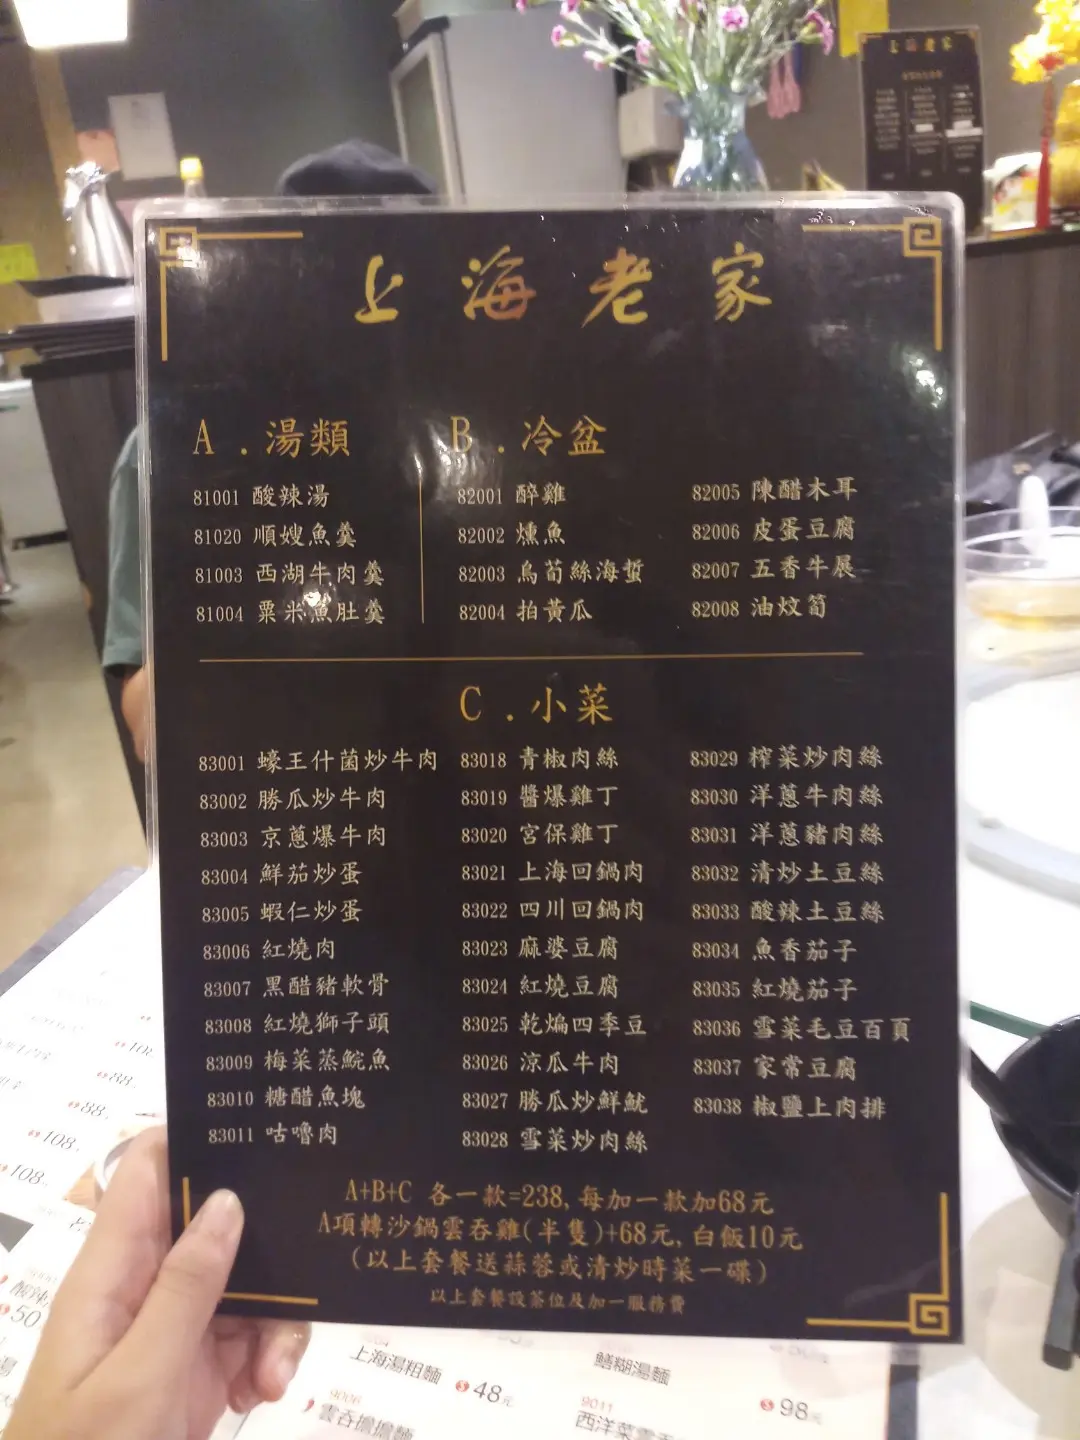 上海老家
A . 湯類
81001 酸辣湯
81020 順嫂魚羹
81003 西湖牛肉羹
81004 粟米魚肚羹
B . 冷盆
82001 醉雞
82002 燻魚
82003 烏荀絲海蜇
82004 拍黃瓜
82005 陳醋木耳
82006 皮蛋豆腐
82007 五香牛展
82008 油炆筍
C . 小菜
83001 蠔王什菌炒牛肉
83002 勝瓜炒牛肉
83003 京蔥爆牛肉
83004 鮮茄炒蛋
83005 蝦仁炒蛋
83006 紅燒肉
83007 黑醋豬軟骨
83008 紅燒獅子頭
83009 梅菜蒸鯇魚
83010 糖醋魚塊
83011 咕嚕肉
83018 青椒肉絲
83019 醬爆雞丁
83020 宮保雞丁
83021 上海回鍋肉
83022 四川回鍋肉
83023 麻婆豆腐
83024 紅燒豆腐
83025 乾煸四季豆
83026 涼瓜牛肉
83027 勝瓜炒鮮魷
83028 雪菜炒肉絲
83029 榨菜炒肉絲
83030 洋蔥牛肉絲
83031 洋蔥豬肉絲
83032 清炒土豆絲
83033 酸辣土豆絲
83034 魚香茄子
83035 紅燒茄子
83036 雪菜毛豆百頁
83037 家常豆腐
83038 椒鹽上肉排
A+B+C 各一款=238, 每加一款加68元
A項轉沙鍋雲吞雞(半隻)+68元, 白飯10元
(以上套餐送蒜蓉或清炒時菜一碟)
以上套餐設茶位及加一服務費
上海老家
108
88
88
108
108
50
上海湯粗麵 48元
鱔糊湯麵
9006
雲吞擔擔麵
9011
98元
西洋菜雲